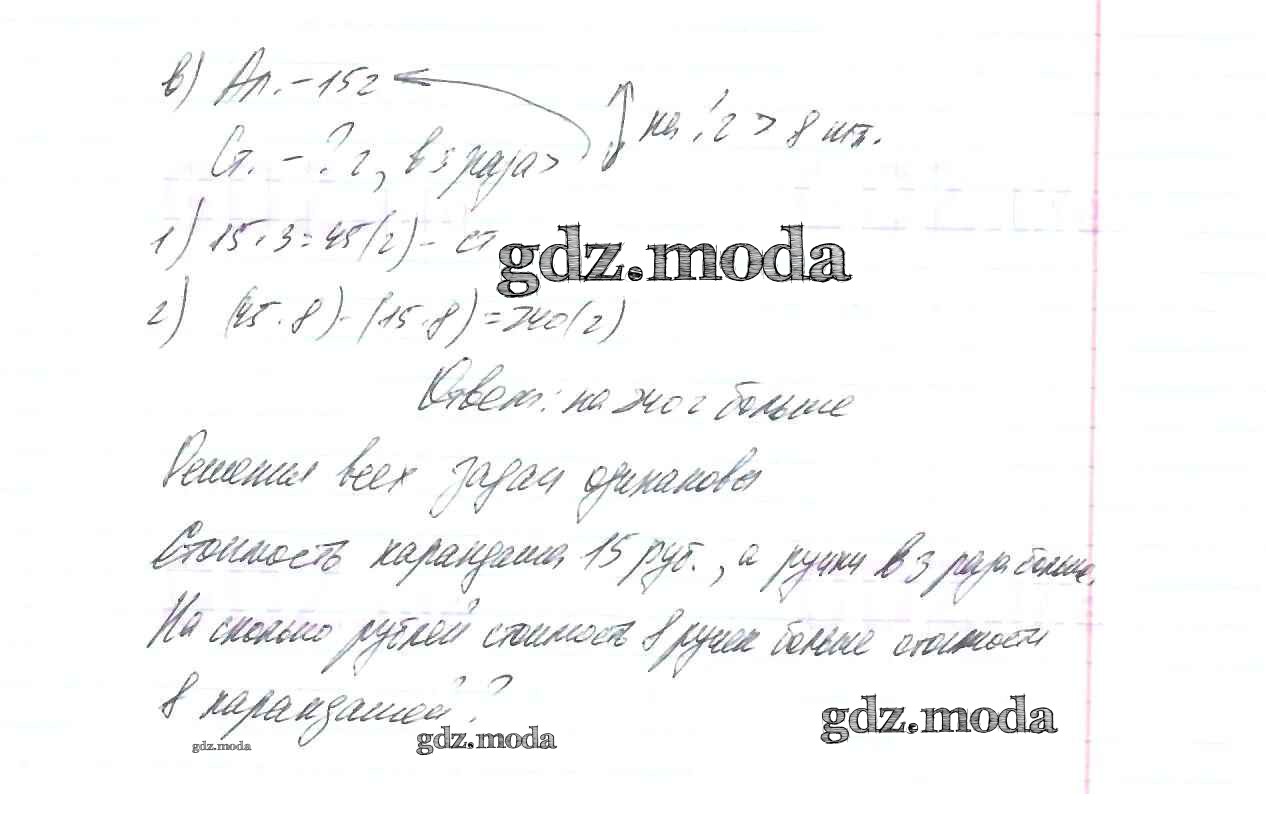 в) Ал. - 15 г
на ? г > 8 шт.
Ст. - ? г, в 3 раза >
1) 15 · 3 = 45 (г) - ст
gdz.moda
2) (45 · 8) - (15 · 8) = 240 (г)
Ответ: на 240 г больше
Решения всех задач одинаковы
Стоимость карандаша 15 руб., а ручки в 3 раза больше.
На сколько рублей стоимость 8 ручек больше стоимости
8 карандашей?
gdz.moda
gdz.moda
gdz.moda